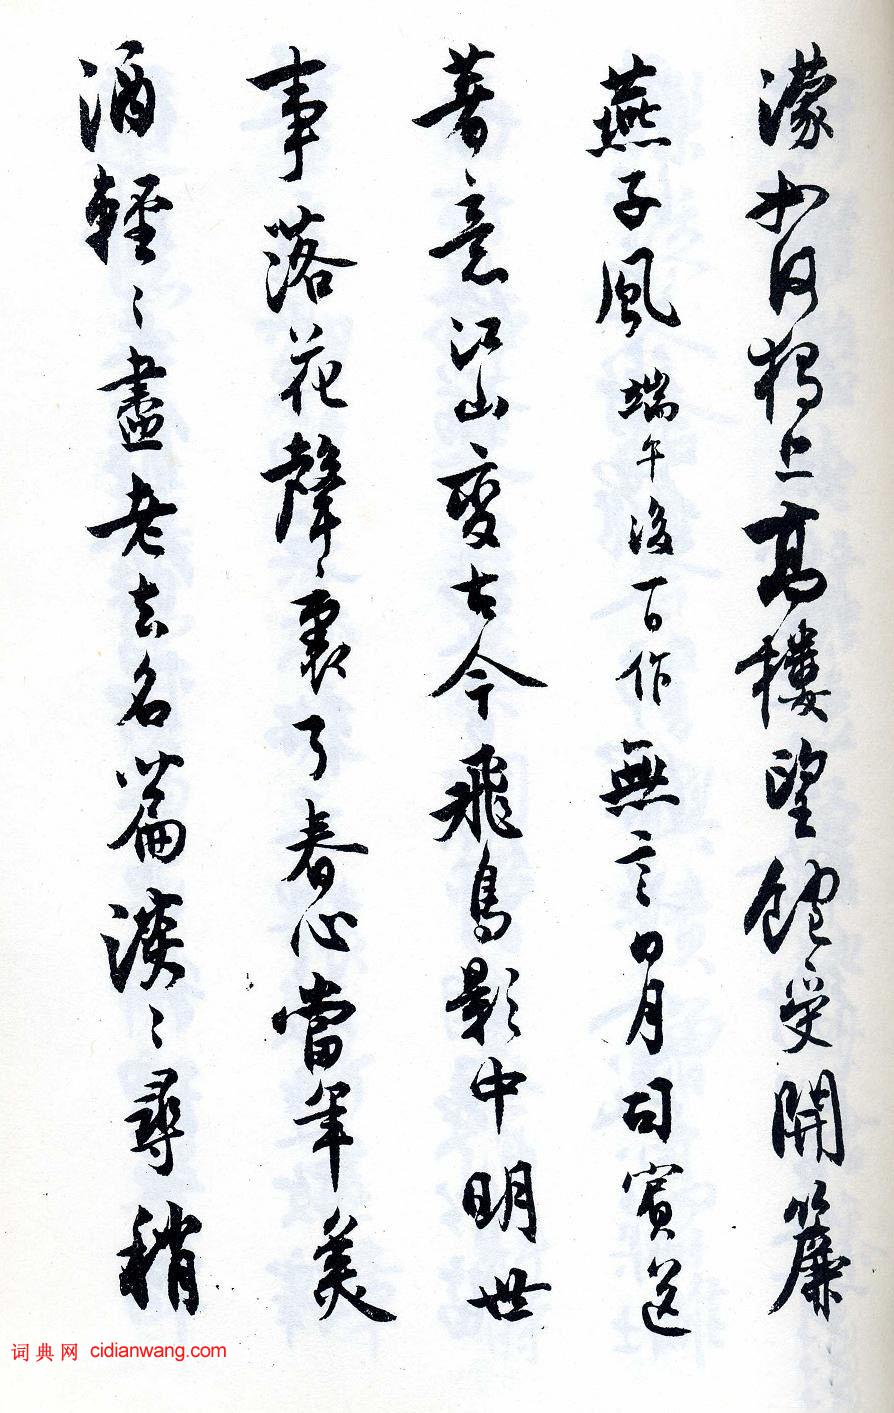 濛如何獨上高樓望飽受開簾
燕子風端午後一日作無言日月司賓送
著意江山變古今飛鳥影中明世
事落花聲裏了春心當年美
酒輕〻盡老去名篇淡〻尋稍
词典网 cidianwang.com